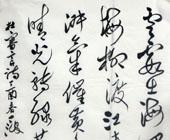 雲霞出海
梅柳渡江
淑氣催黃
晴光轉綠蘋
杜審言詩丁酉春